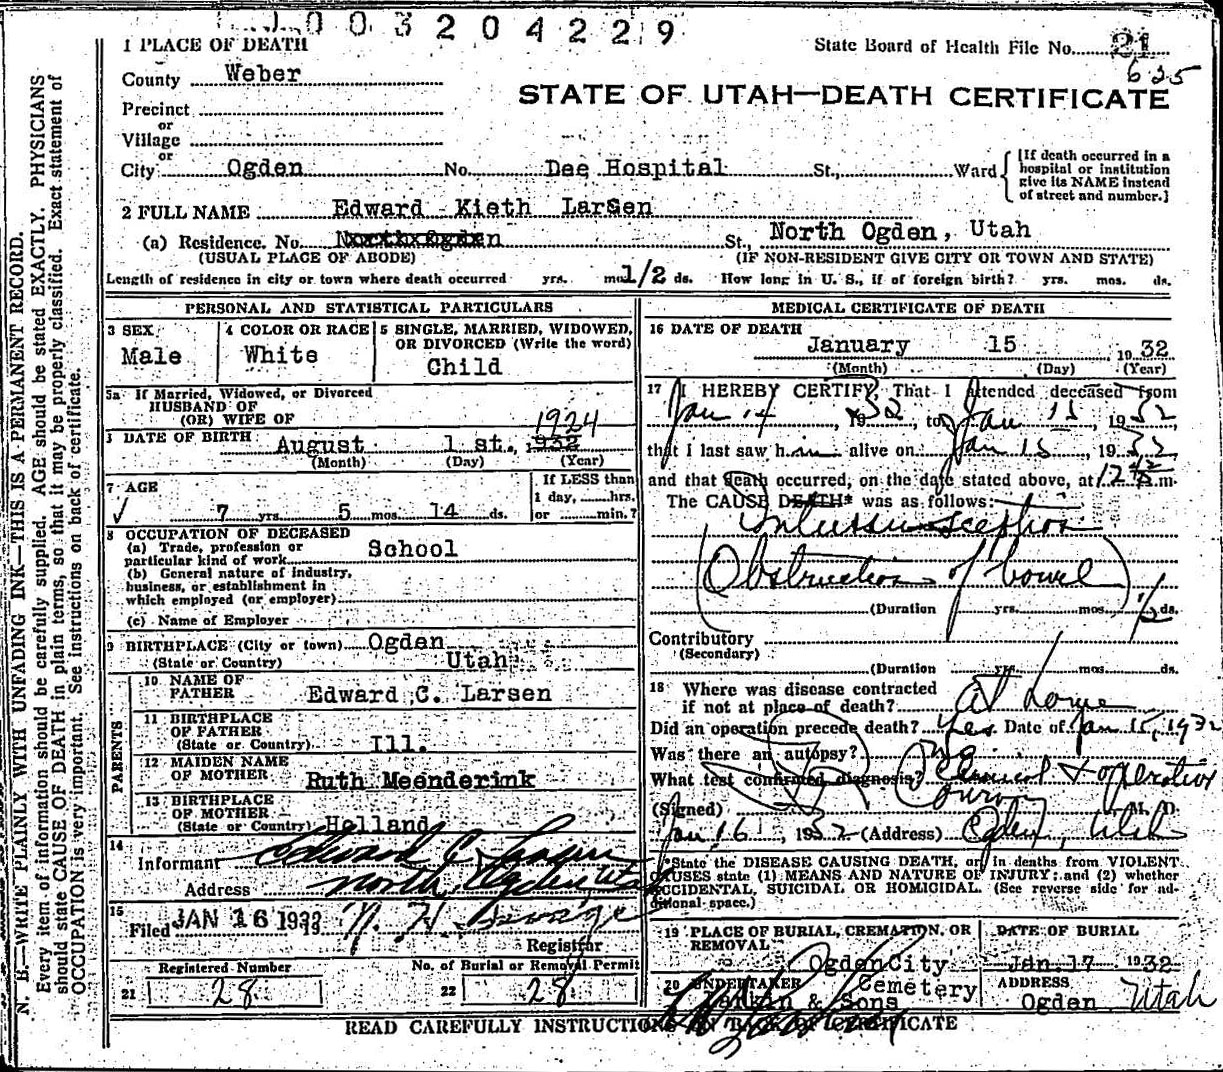 003204229
1 PLACE OF DEATH
State Board of Health File No. 21
625
County Weber
STATE OF UTAH—DEATH CERTIFICATE
Precinct
or
Village
or
City Ogden No. Dee Hospital St., Ward
[If death occurred in a
hospital or institution
give its NAME instead
of street and number.]
2 FULL NAME Edward Kieth Larsen
(a) Residence. No. North Ogden St., North Ogden, Utah
(USUAL PLACE OF ABODE) (IF NON-RESIDENT GIVE CITY OR TOWN AND STATE)
Length of residence in city or town where death occurred yrs. mos. 1/2 ds. How long in U. S., if of foreign birth? yrs. mos. ds.
PERSONAL AND STATISTICAL PARTICULARS
3 SEX
Male
4 COLOR OR RACE
White
5 SINGLE, MARRIED, WIDOWED,
OR DIVORCED (Write the word)
Child
5a If Married, Widowed, or Divorced
HUSBAND OF
(OR) WIFE OF
1924
6 DATE OF BIRTH August 1st., 1932
(Month) (Day) (Year)
7 AGE
7 yrs. 5 mos. 14 ds.
If LESS than
1 day, hrs.
or min.?
8 OCCUPATION OF DECEASED
(a) Trade, profession or
particular kind of work School
(b) General nature of industry,
business, or establishment in
which employed (or employer)
(c) Name of Employer
9 BIRTHPLACE (City or town) Ogden
(State or Country) Utah
PARENTS
10 NAME OF
FATHER Edward C. Larsen
11 BIRTHPLACE
OF FATHER
(State or Country) Ill.
12 MAIDEN NAME
OF MOTHER Ruth Meenderink
13 BIRTHPLACE
OF MOTHER
(State or Country) Holland
14
Informant Edward C Larsen
Address North Ogden Ut
15
Filed JAN 16 1932
Registrar
Registered Number No. of Burial or Removal Permit
21 28 22 28
MEDICAL CERTIFICATE OF DEATH
16 DATE OF DEATH
January 15 1932
(Month) (Day) (Year)
17 I HEREBY CERTIFY, That I attended deceased from
Jan 14, 1932, to Jan 15, 1932
that I last saw him alive on Jan 15, 1932,
and that death occurred, on the date stated above, at 12 42 m.
The CAUSE DEATH* was as follows:
Intussusception
(Obstruction of bowel)
(Duration yrs. mos. 1/2 ds.
Contributory
(Secondary)
(Duration yrs. mos. ds.
18 Where was disease contracted
if not at place of death? At home
Did an operation precede death? Yes Date of Jan 15, 1932
Was there an autopsy? No
What test confirmed diagnosis? Clinical & operation
(Signed) M. D.
Jan 16, 1932 (Address) Ogden, Utah
*State the DISEASE CAUSING DEATH, or in deaths from VIOLENT
CAUSES state (1) MEANS AND NATURE OF INJURY: and (2) whether
ACCIDENTAL, SUICIDAL OR HOMICIDAL. (See reverse side for ad-
ditional space.)
19 PLACE OF BURIAL, CREMATION, OR
REMOVAL
Ogden City
Cemetery
DATE OF BURIAL
Jan. 17 1932
20 UNDERTAKER
Larkin & Sons
ADDRESS
Ogden Utah
READ CAREFULLY INSTRUCTIONS ON BACK OF CERTIFICATE
N. B.—WRITE PLAINLY WITH UNFADING INK—THIS IS A PERMANENT RECORD.
Every item of information should be carefully supplied. AGE should be stated EXACTLY. PHYSICIANS
should state CAUSE OF DEATH in plain terms, so that it may be properly classified. Exact statement of
OCCUPATION is very important. See instructions on back of certificate.